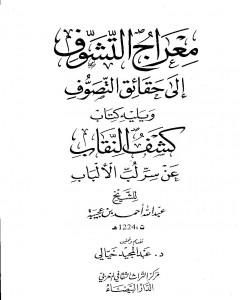 معراج التشوف
إلى حقائق التصوف
ويليه كتاب
كشف النقاب
عن سر لب الألباب
للشيخ
عبد الله أحمد بن عجيبة
ت 1224 هـ
تقديم وتحقيق
د. عبد المجيد خيالي
مركز التراث الثقافي المغربي
الدار البيضاء